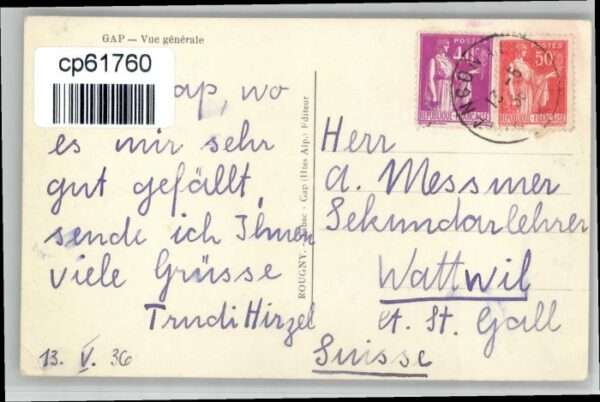 GAP — Vue générale
cp61760
ap, wo
es mir sehr
gut gefällt,
sende ich Ihnen
viele Grüsse
Trudi Hirzel
13. V. 36
ROUGNY, Gap (Htes Alp.) Editeur
POSTES
50c
REPUBLIQUE FRANÇAISE
POSTES
REPUBLIQUE FRANÇAISE
Herr
A. Messmer
Sekundarlehrer
Wattwil
Ct. St. Gall
Suisse